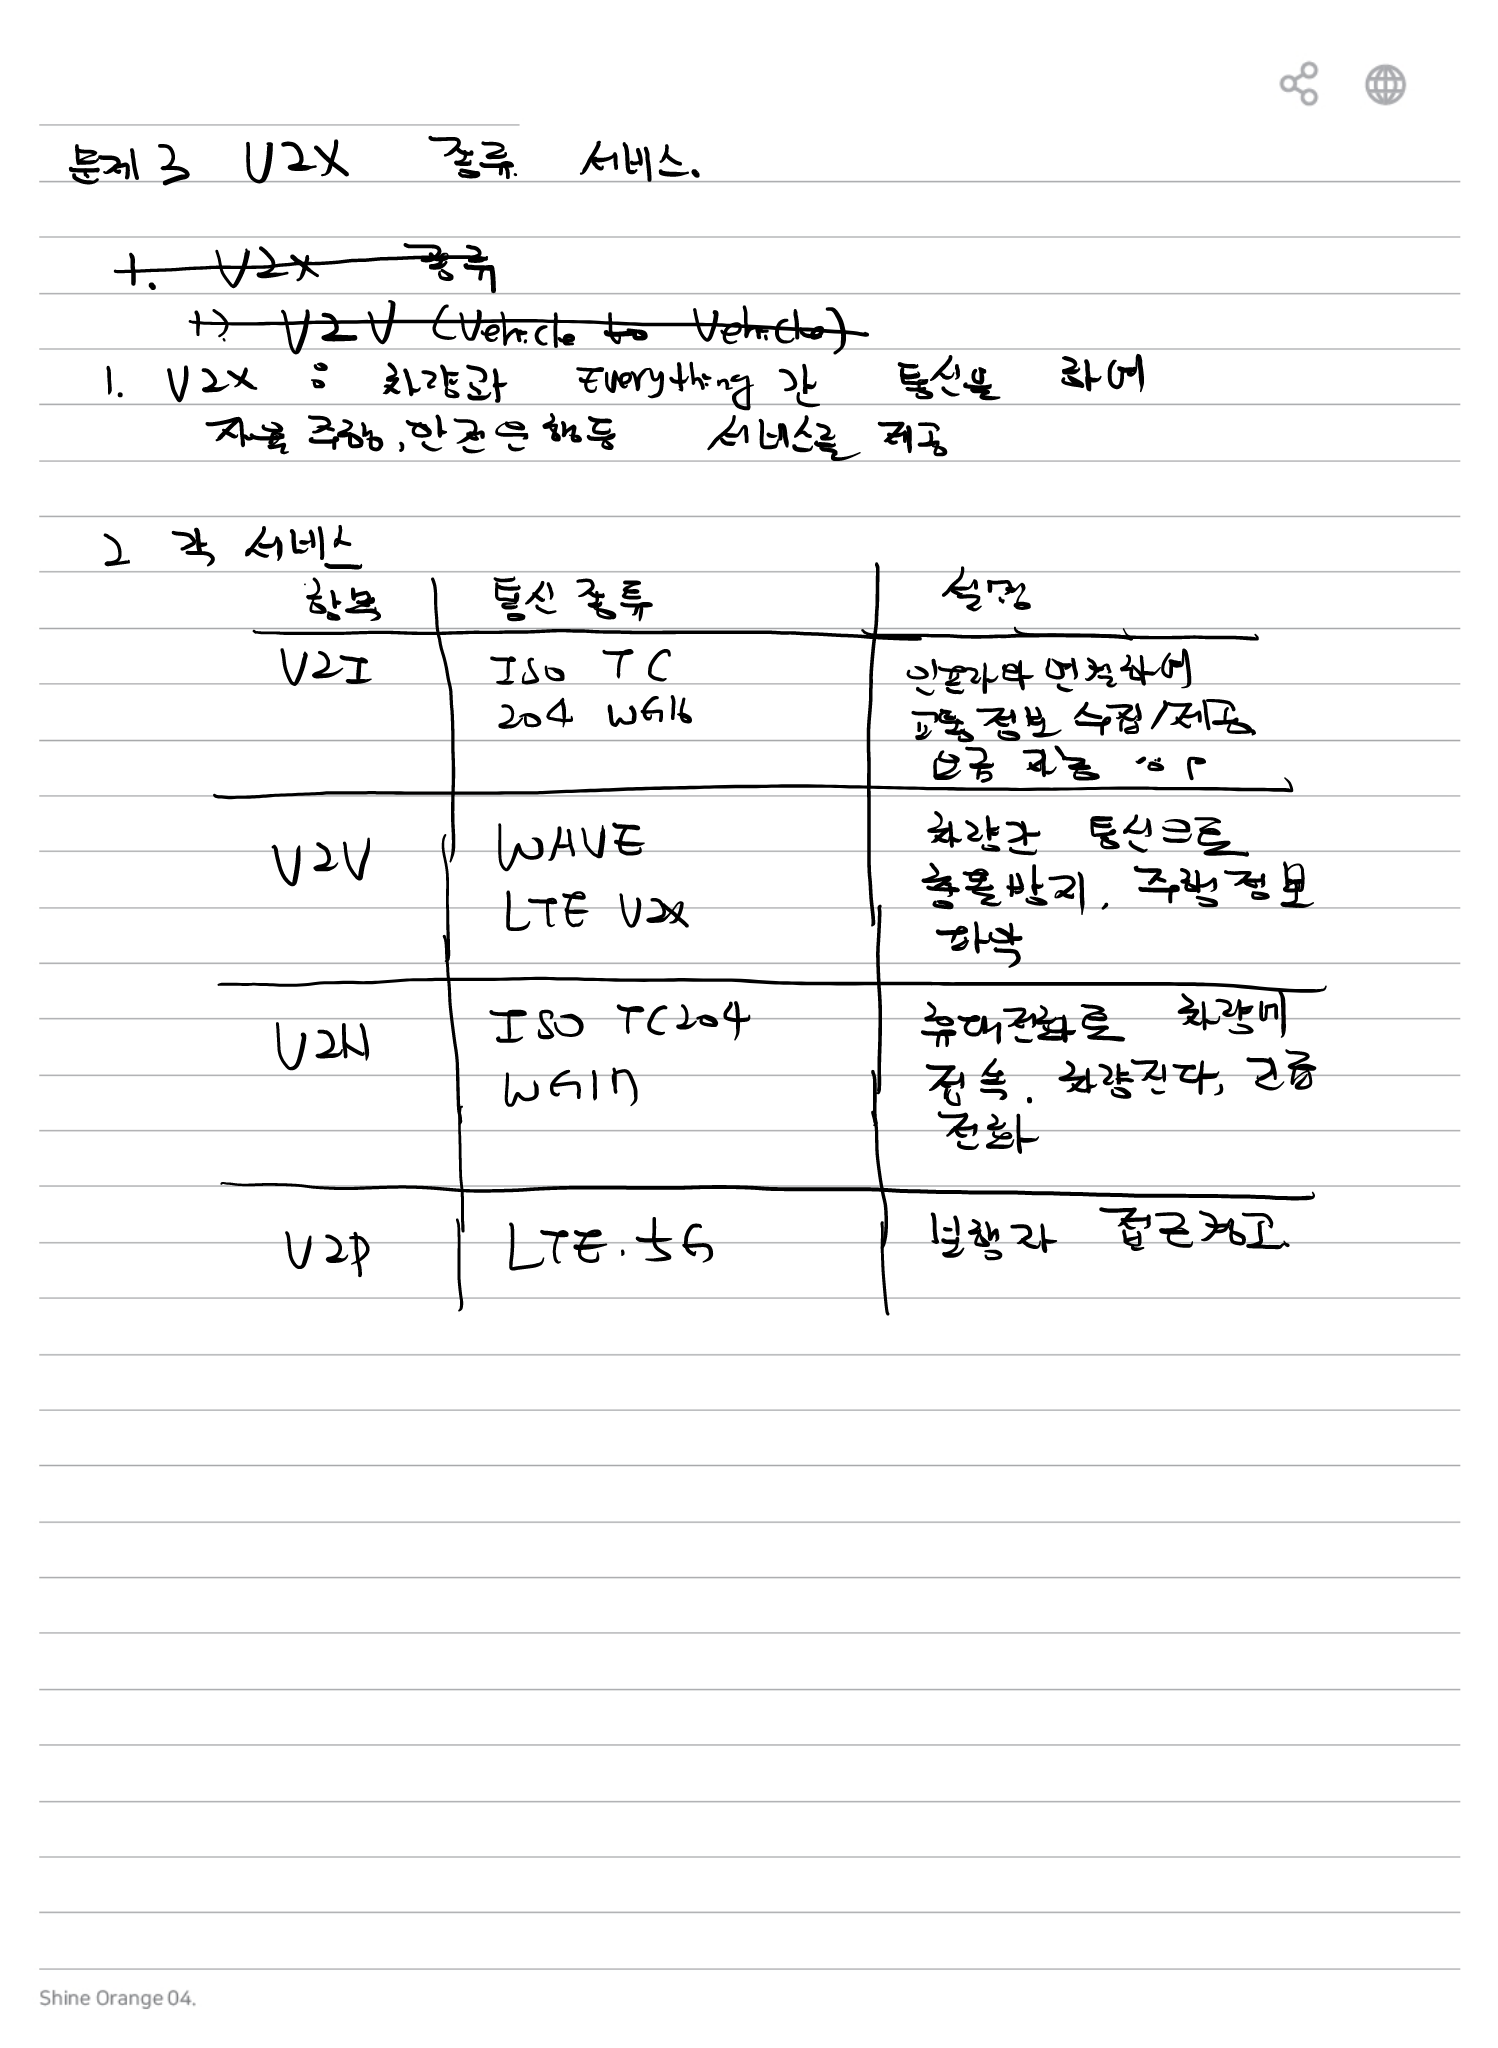 문제 3 V2X 종류 서비스.
1. V2X 종류
1) V2V (Vehicle to Vehicle)
1. V2X : 차량과 Everything 간 통신을 하여
자율 주행, 안전운행등 서비스를 제공
2 각 서비스
항목 통신 종류 설명
V2I ISO TC 204 WG16 인프라와 연결하여
교통 정보 수집/제공
요금 자동
V2V WAVE 차량간 통신으로
LTE V2X 충돌방지, 주행정보
파악
V2N ISO TC204 휴대전화로 차량에
WG17 접속. 차량진단, 긴급
전화
V2P LTE. 5G 보행자 접근경고.
Shine Orange 04.